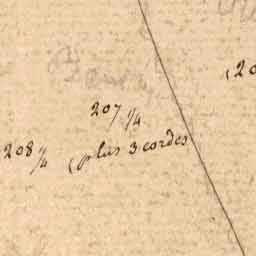 (20
207 1/4
208 1/4
(plus 3 cordes